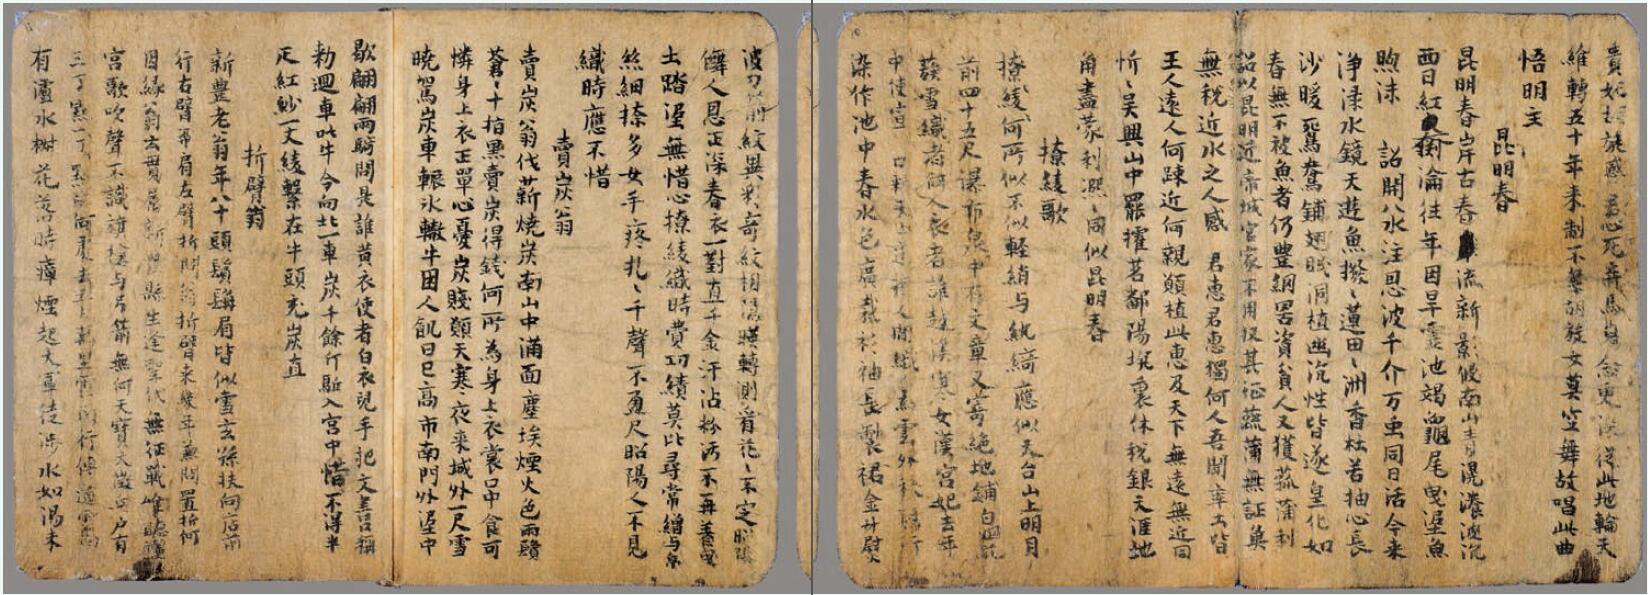 貴妃胡旋感君心死弃馬嵬念更深從此地軸天
維轉五十年来制不禁胡旋女莫空舞故唱此曲
悟明主
昆明春
昆明春岸古春流新影侵南山青滉瀁波沉
西日紅奫淪往年因旱靈池竭龜尾曳渥魚
煦沫 詔開八水注恩波千介万虫同日活今来
淨渌水鏡天遊魚撥〻蓮田〻洲香杜若抽心長
沙暖鴛鴦鋪翅眠洞植幽沉性皆遂皇化如
春無不被魚者仍豐網罟資貧人又獲菰蒲利
詔以昆明近帝城官家不用收其征菰蒲無征魚
無税近水之人感 君惠君惠獨何人吾聞率土皆
王人遠人何踈近何親願植此惠及天下無遠無近同
忻〻吴興山中罷攉茗鄱陽坑裏休税銀天涯地
角盡蒙利熙〻同似昆明春
撩綾歌
撩綾〻何所似不似軽綃与紈綺應似天台山上明月
前四十五尺瀑布泉中有文章又竒絶地鋪白烟花
蔟雪織者何人衣者誰越溪寒女漢宫妃去年
中使宣口勑天上進樣人間織為雲外秋鴈行
染作池中春水色廣裁衫袖長製裙金斗熨
波刀剪紋異彩竒紋相隱暎轉測看花〻不定昭陽
儛人恩正深春衣一對直千金汗沾粉汚不再著曳
土踏渥無惜心撩綾織時費功績莫比尋常繒与帛
絲細撩多女手疼扎〻千聲不盈尺昭陽人不見
織時應不惜
賣炭翁
賣炭翁伐薪燒炭南山中滿面塵埃煙火色兩鬢
蒼〻十指黑賣炭得錢何所為身上衣裳口中食可
憐身上衣正單心憂炭賤願天寒夜来城外一尺雪
曉駕炭車輾氷轍牛困人飢日已高市南門外渥中
歇翩翩兩騎問是誰黄衣使者白衣兒手把文書口稱
勑迴車叱牛令向北一車炭千餘斤驅入宫中惜不得半
疋紅紗一丈綾繫在牛頭充炭直
折臂翁
新豐老翁年八十頭鬢鬚眉皆似雪玄孫扶向店前
行右臂凴肩左臂折問翁折臂来幾年兼問置折何
因縁翁云貫属新豐縣生逢聖代無征戰唯聽
宫歌吹聲不識旗槍与弓箭無何天寶大徵兵户有
三丁㸃一丁㸃得何處去五月萬里雲南行傳道雲南
有瀘水椒花落時瘴煙起大軍徒渉水如湯未